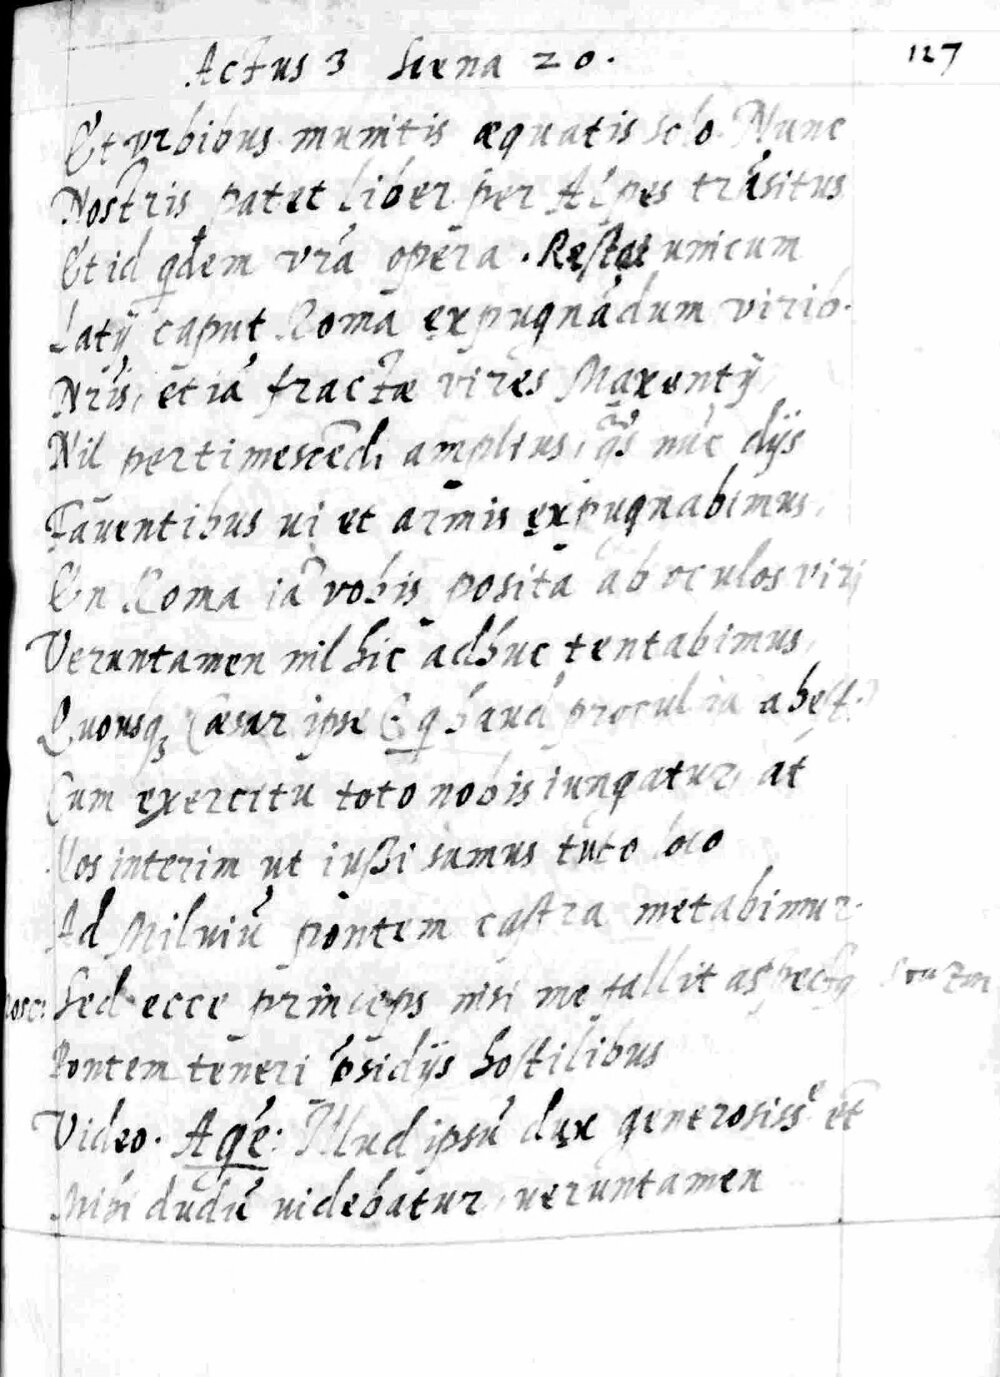 Actus 3 Scena 20. 127
Et vrbibus munitis æquatis solo. Nunc
Nostris patet liber per Alpes trãsitus
Et id qdem vrã opera. Restat unicum
Latij caput Roma expugnãdum virib.
Nris, etiã fractæ vires Maxentij
Nil pertimescẽdi amplius, qs nũc dijs
Fauentibus ui et armis expugnabimus.
En Roma iã vobis posita ab oculos viri
Veruntamen nil hic adhuc tentabimus,
Quousq Cæsar ipse haud procul iã abest
Cum exercitu toto nobis iungatur, at
Nos interim ut iußi sumus tuto loco
Ad Miluiũ pontem castra metabimur.
Sed ecce princeps nisi me fallit aspectq
Pontem teneri õsidijs hostilibus
Video. Age: Illud ipsũ dux generosiss et
Mihi dudũ uidebatur, ueruntamen